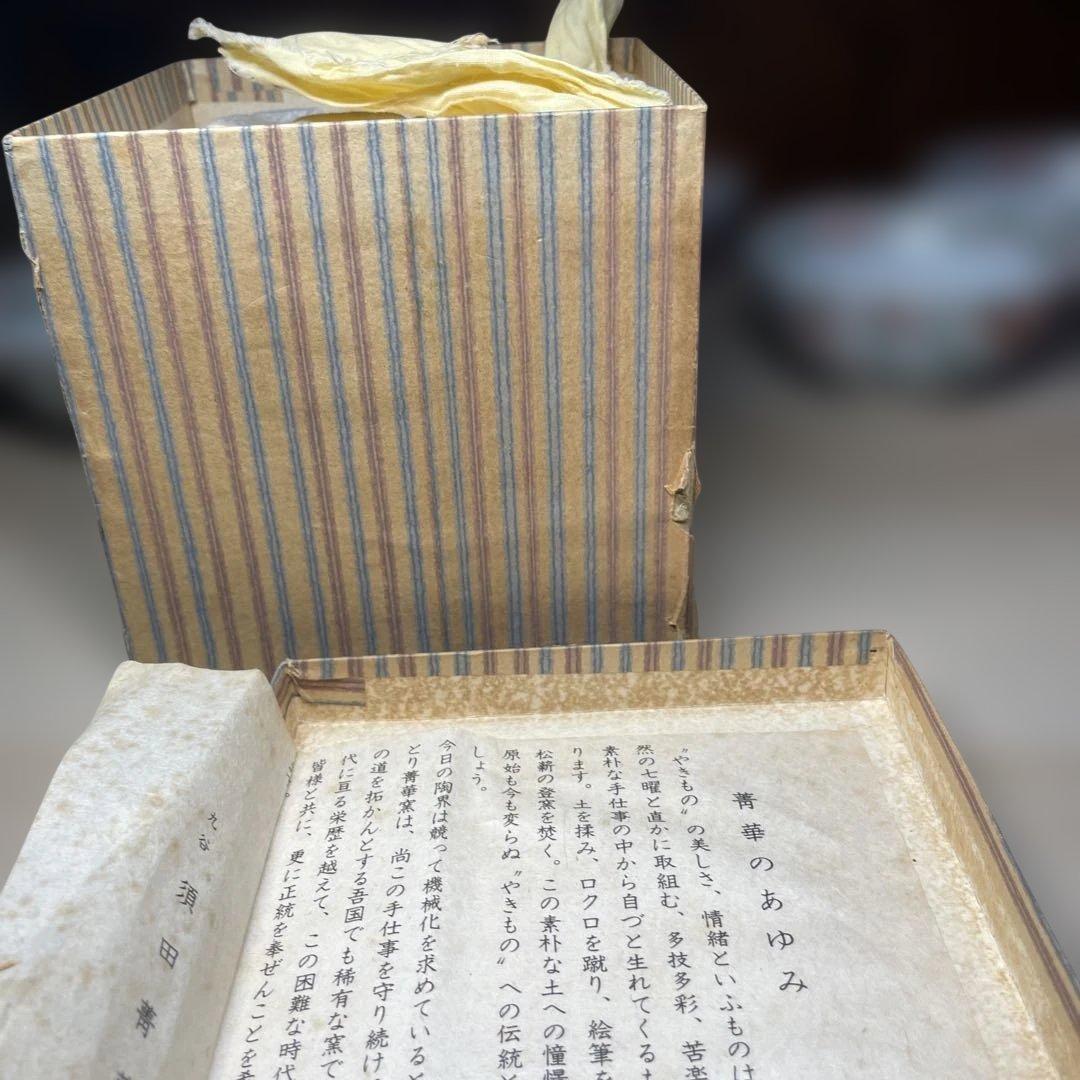 菁華のあゆみ
〝やきもの〟の美しさ、情緒といふものは
然の七曜と直かに取組む、多技多彩、苦楽
素朴な手仕事の中から自づと生れてくる
ります。土を揉み、ロクロを蹴り、絵筆を
松薪の登窯を焚く。この素朴な土への憧憬
原始も今も変らぬ〝やきもの〟への伝統と
しょう。
今日の陶界は競って機械化を求めていると
どり菁華窯は、尚この手仕事を守り続け
の道を拓かんとする吾国でも稀有な窯で
代に亘る栄歴を越えて、この困難な時代
皆様と共に、更に正統を奉ぜんことを希
九谷 須田菁